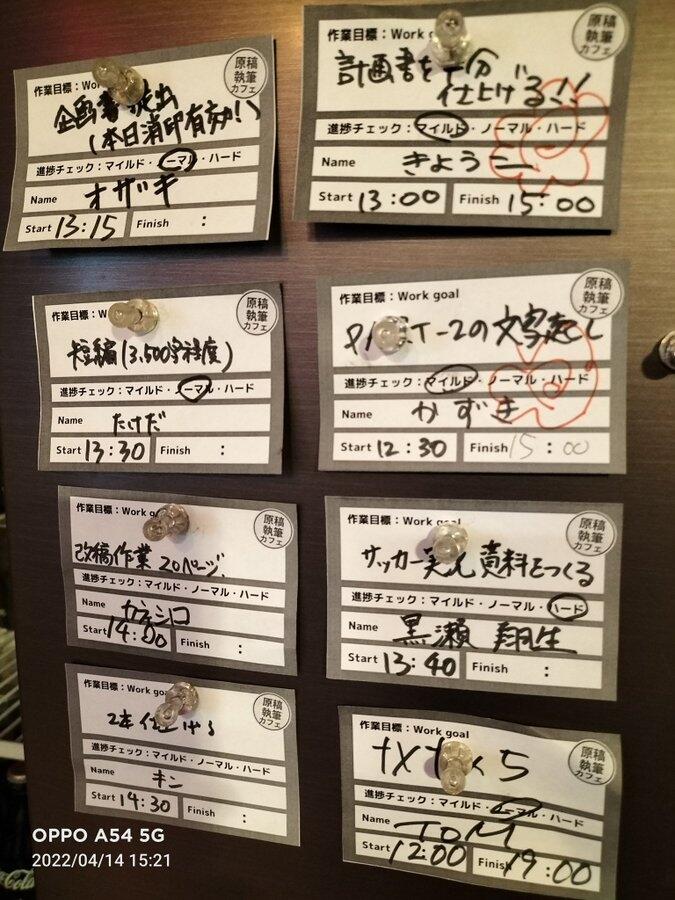 作業目標：Wor
原稿
執筆
カフェ
企画書 提出
(本日消印有効!)
進捗チェック：マイルド・ノーマル・ハード
Name オザキ
Start 13:15 Finish :
作業目標：Work g
原稿
執筆
カフェ
計画書を 分
仕上げる!!
進捗チェック：マイルド・ノーマル・ハード
Name きょうこ
Start 13:00 Finish 15:00
作業目標：W
原稿
執筆
カフェ
短編(3,500字程度)
進捗チェック：マイルド・ノーマル・ハード
Name たけだ
Start 13:30 Finish :
作業目標：Work goal
原稿
執筆
カフェ
T-2の文字起こし
進捗チェック：マイルド・ノーマル・ハード
Name かずき
Start 12:30 Finish 15:00
作業目標：Work
原稿
執筆
カフェ
改稿作業 20ページ
進捗チェック：マイルド・ノーマル・ハード
Name カネシロ
Start 14:00 Finish :
作業目標：Work goal
原稿
執筆
カフェ
サッカー 資料をつくる
進捗チェック：マイルド・ノーマル・ハード
Name 黒瀬 翔生
Start 13:40 Finish :
作業目標：Work goa
原稿
執筆
カフェ
2本仕上げる
進捗チェック：マイルド・ノーマル・ハード
Name キン
Start 14:30 Finish :
作業目標：Work goal
原稿
執筆
カフェ
5
進捗チェック：マイルド・ノーマル・ハード
Name TOM
Start 12:00 Finish 19:00
OPPO A54 5G
2022/04/14 15:21